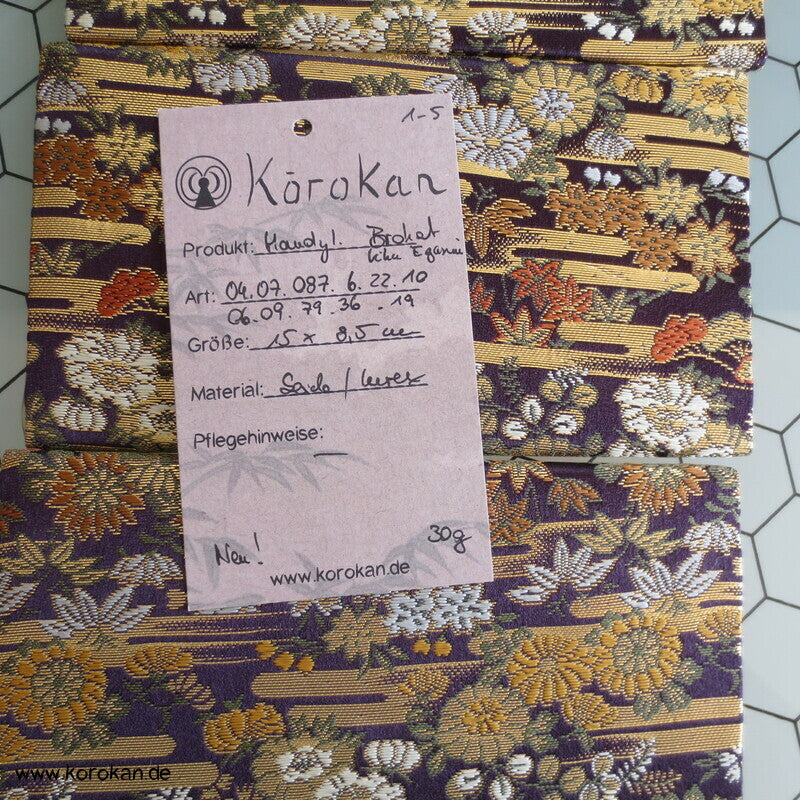 1-5
KōroKan
Produkt: Handyl. Brokat
Kiku Egasumi
Art: 04.07.087.6.22.10
06.09.79.36.19
Größe: 15 x 8,5 cm
Material: Seide / Lurex
Pflegehinweise:
Neu!
30g
www.korokan.de
www.korokan.de